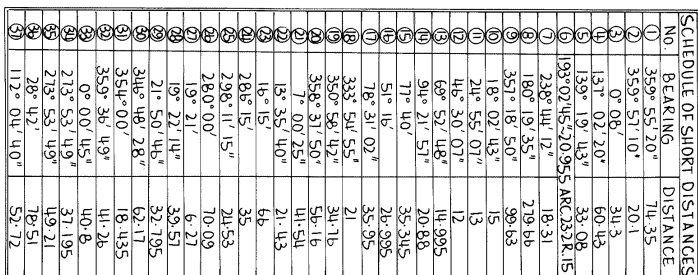 SCHEDULE OF SHORT DISTANCES
No. BEARING DISTANCE
1 359° 55' 20" 74.35
2 359° 57' 10" 20.1
3 0° 08' 34.3
4 137° 02' 20" 60.43
5 139° 19' 43" 33.08
6 193° 02' 45" 20.955 ARC.23.2 R.15
7 238° 44' 12" 18.31
8 180° 19' 35" 279.66
9 357° 18' 50" 99.63
10 18° 02' 43" 15
11 24° 55' 07" 13
12 46° 30' 07" 12
13 69° 52' 48" 14.995
14 94° 21' 57" 20.88
15 77° 40' 35.345
16 51° 16' 26.995
17 78° 31' 02" 35.95
18 333° 54' 55" 21
19 350° 58' 42" 34.76
20 358° 37' 50" 56.16
21 7° 00' 25" 41.54
22 13° 35' 40" 21.43
23 16° 15' 66
24 284° 15' 35
25 298° 11' 15" 24.53
26 280° 00' 70.09
27 19° 21' 6.27
28 19° 22' 14" 39.57
29 21° 50' 46" 32.795
30 344° 48' 28" 62.17
31 354° 00' 18.435
32 359° 36' 49" 41.26
33 0° 00' 45" 40.8
34 273° 53' 49" 37.195
35 273° 53' 49" 49.21
36 28° 42' 78.51
37 112° 04' 40" 52.72